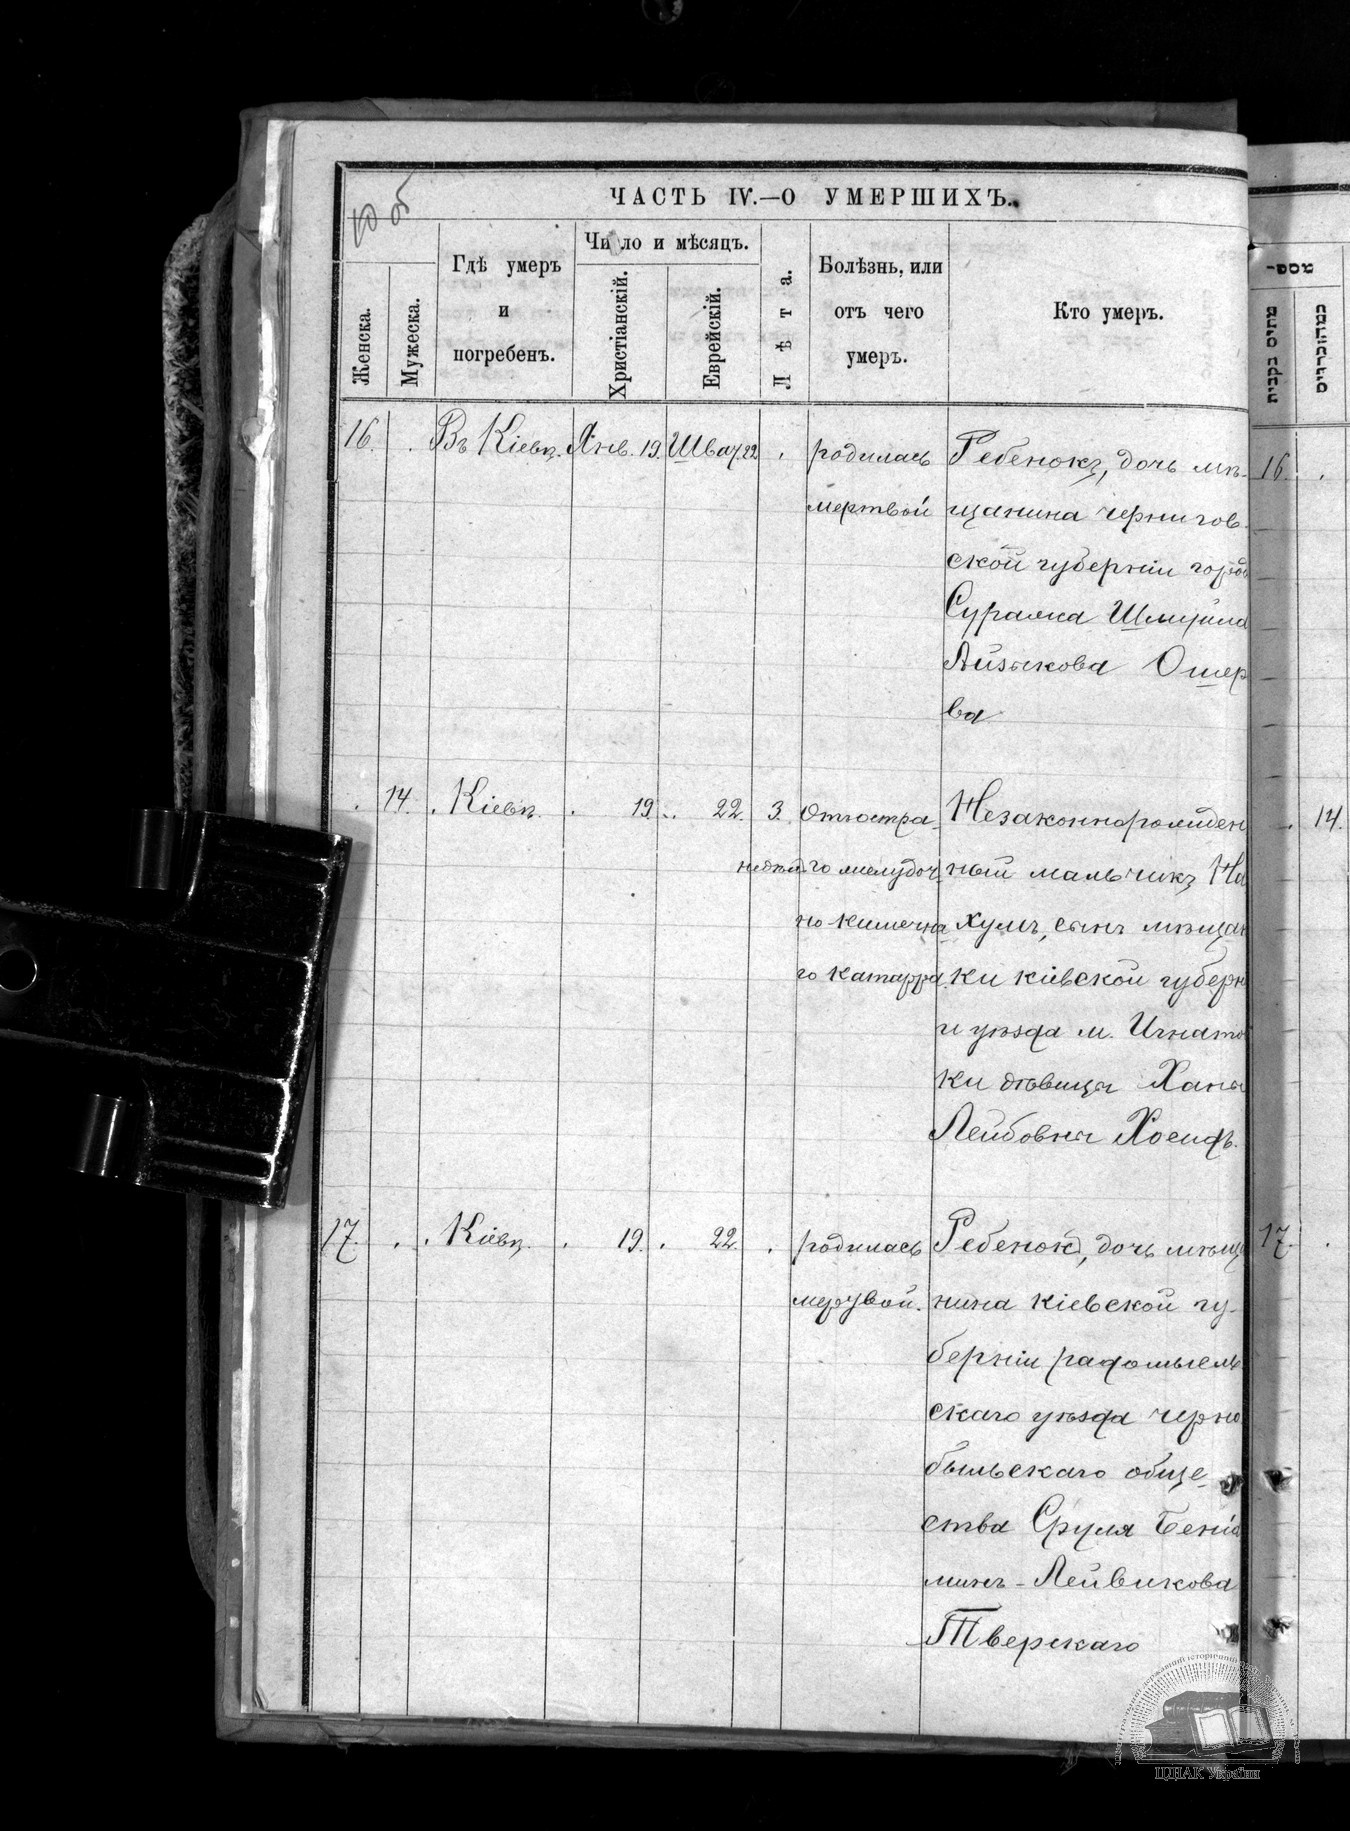 ЧАСТЬ IV.—О УМЕРШИХЪ.
Женска.
Мужеска.
Гдѣ умеръ
и
погребенъ.
Число и мѣсяцъ.
Христіанскій.
Еврейскій.
Лѣта.
Болѣзнь, или
отъ чего
умеръ.
Кто умеръ.
16. Въ Кіевѣ. Янв. 19. Шват 22 родилась Ребенокъ, дочь мѣ-
мертвой щанина чернигов-
ской губерніи города
Суража Шмуйла
Айзыкова Ошер
ва
14. Кіевѣ. 19. 22. 3. Отъ остра- Незаконнорожден
недѣл. го желудоч- ный мальчикъ На
но кишечна хумъ, сынъ мѣщан
го катарра. ки кіевской губерн
и уѣзда м. Игнатов
ки дѣвицы Ханы
Лейбовны Хоенфъ.
17. Кіевѣ. 19. 22. родилась Ребенокъ, дочь мѣща
мертвой. нина кіевской гу-
берніи радомысль
скаго уѣзда черно
быльскаго обще-
ства Сруля Бенiа
минъ-Лейвикова
Тверскаго
16.
14.
17.
ЦДІАК України